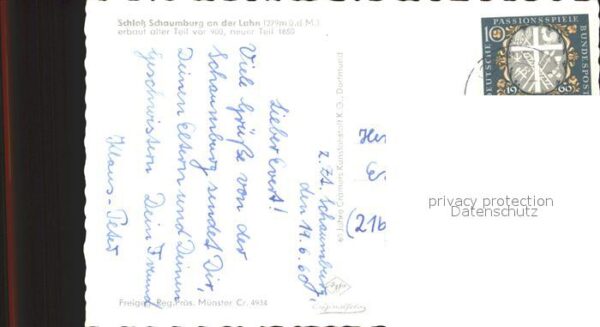 Schloß Schaumburg an der Lahn (279m ü.d.M.)
erbaut alter Teil vor 900, neuer Teil 1850
z. Zt. Schaumburg,
den 14.6.60
Lieber Evert!
Viele Grüße von der
Schaumburg sendet Dir,
Deinen Eltern und Deinen
Geschwistern Dein Freund
Klaus-Peter
Freigeg. Reg. Präs. Münster Cr. 4934
K.G., Dortmund
Agfa
(21b
10
DEUTSCHE
PASSIONSSPIELE
BUNDESPOST
19 60
privacy protection
Datenschutz